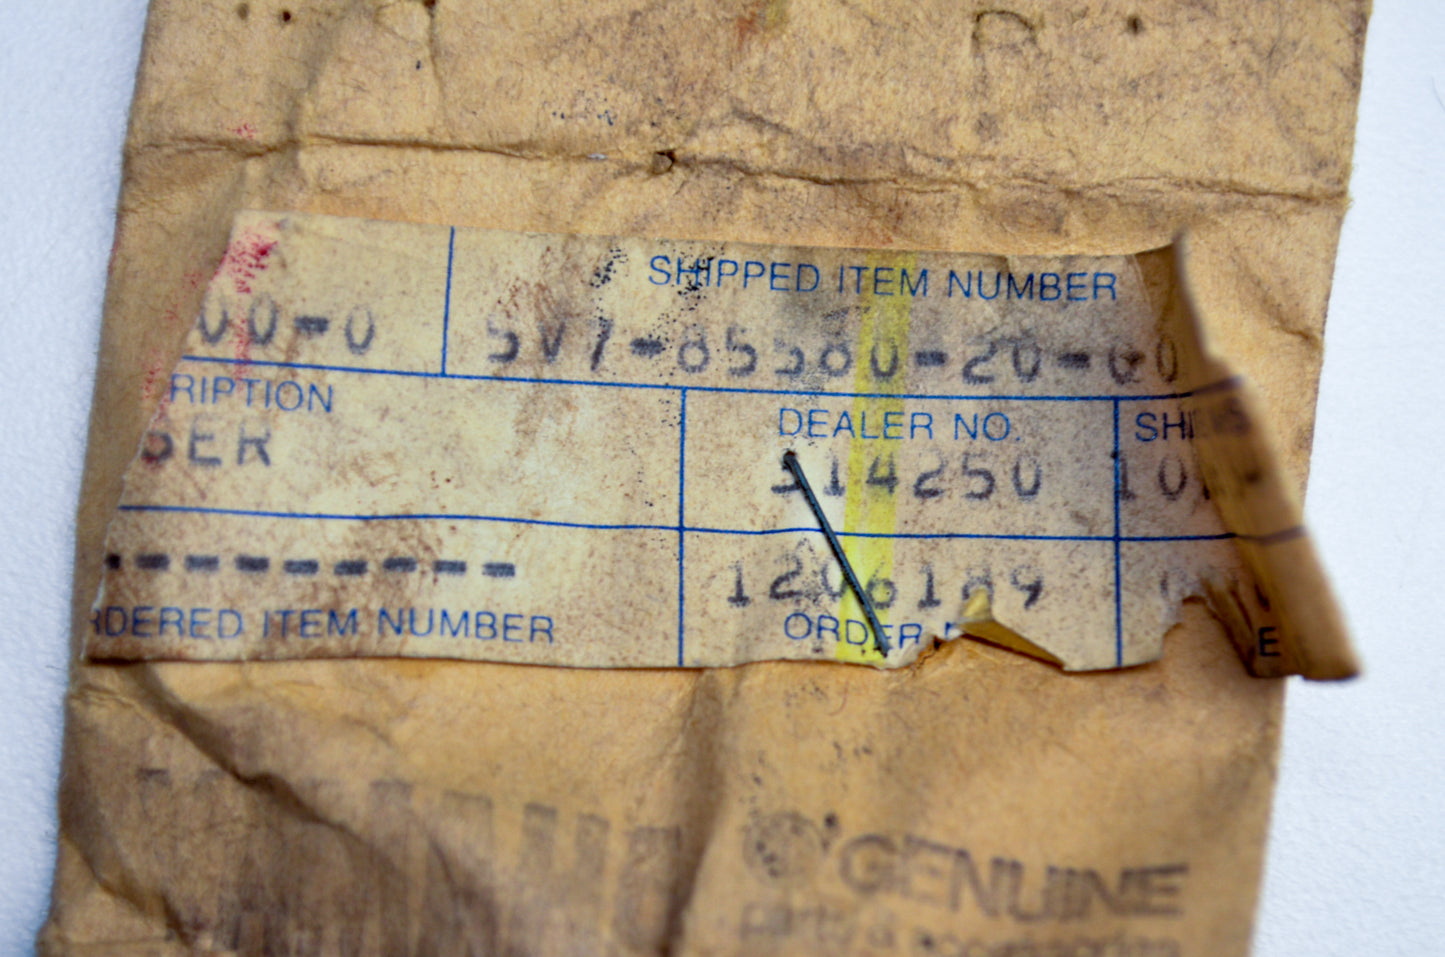 SHIPPED ITEM NUMBER
00-0 5V7-85580-20-00
RIPTION DEALER NO.
SER 314250
---------
1206189
RDERED ITEM NUMBER ORDER
GENUINE
parts & accessories